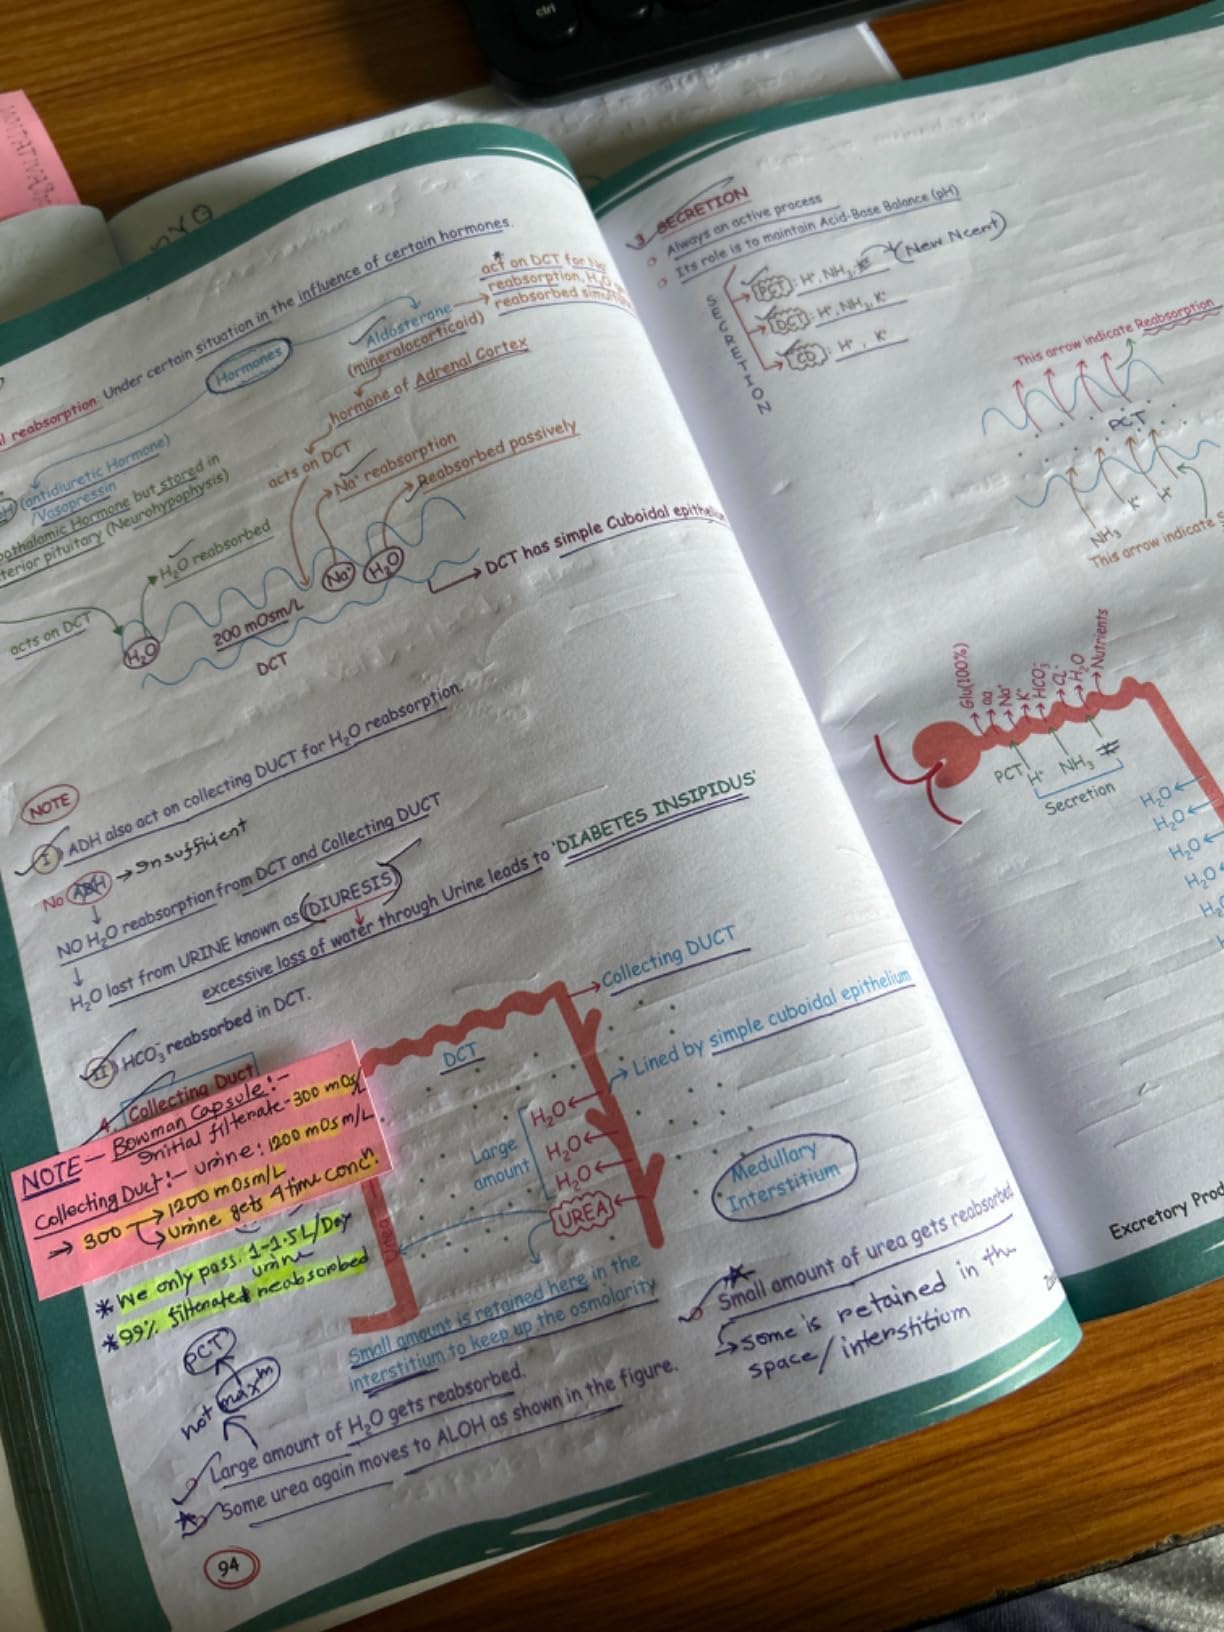 ctrl
l reabsorption: Under certain situation in the influence of certain hormones.
Hormones
Aldosterone
(mineralocorticoid)
hormone of Adrenal Cortex
acts on DCT
act on DCT for Na
reabsorption, H₂O
reabsorbed simult
(antidiuretic Hormone)
/Vasopressin
pothalamic Hormone but stored in
terior pituitary (Neurohypophysis)
H₂O reabsorbed
acts on DCT
Na⁺ reabsorption
Reabsorbed passively
H₂O
200 mOsm/L
Na⁺
H₂O
DCT
DCT has simple Cuboidal epithe
NOTE
I) ADH also act on collecting DUCT for H₂O reabsorption.
No ADH → Insufficient
NO H₂O reabsorption from DCT and Collecting DUCT
H₂O lost from URINE known as (DIURESIS)
excessive loss of water through Urine leads to 'DIABETES INSIPIDUS'
II) HCO₃⁻ reabsorbed in DCT.
4. Collecting Duct
NOTE – Bowman Capsule:-
Initial filterate-300 mOs
Collecting Duct:- urine: 1200 mOsm/L
⇒ 300 → 1200 mOsm/L
Urine gets 4 time concⁿ.
* We only pass. 1-1.5L/Day
urine
* 99% filterated reabsorbed
PCT
not maxᵐ
DCT
Collecting DUCT
Lined by simple cuboidal epithelium
Large
amount
H₂O
H₂O
H₂O
UREA
Urea
Medullary
Interstitium
Small amount is retained here in the
interstitium to keep up the osmolarity
Large amount of H₂O gets reabsorbed.
Some urea again moves to ALOH as shown in the figure.
Small amount of urea gets reabsorbed
Some is retained in the
space/interstitium
94
3. SECRETION
Always an active process
Its role is to maintain Acid-Base Balance (pH)
SECRETION
PCT: H⁺, NH₃, K⁺ (New Ncert)
DCT: H⁺, NH₃, K⁺
CD: H⁺, K⁺
This arrow indicate Reabsorption
PCT
NH₃ K⁺ H⁺
This arrow indicate S
Glu(100%)
aa
Na⁺
K⁺
HCO₃⁻
CL⁻
H₂O
Nutrients
PCT
H⁺ NH₃
Secretion
H₂O
H₂O
H₂O
H₂O
Excretory Prod